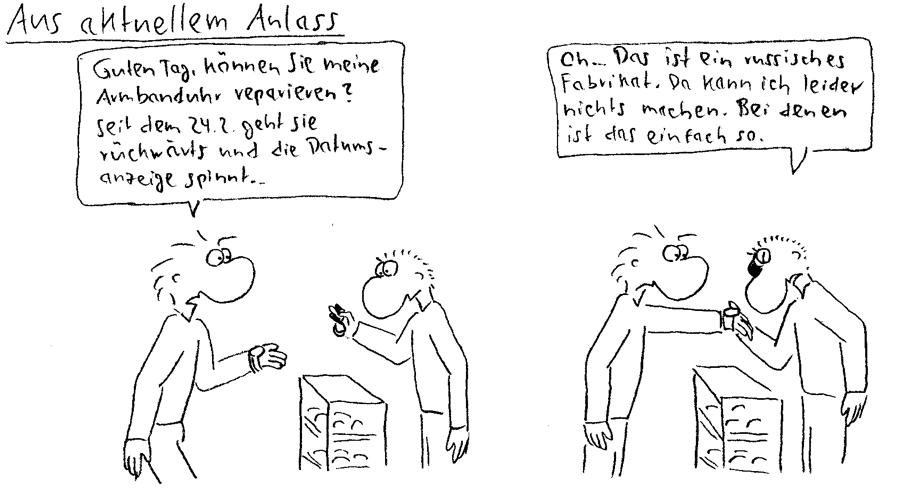 Aus aktuellem Anlass
Guten Tag, können Sie meine
Armbanduhr reparieren?
seit dem 24.2. geht sie
rückwärts und die Datums-
anzeige spinnt...
Oh... Das ist ein russisches
Fabrikat. Da kann ich leider
nichts machen. Bei denen
ist das einfach so.